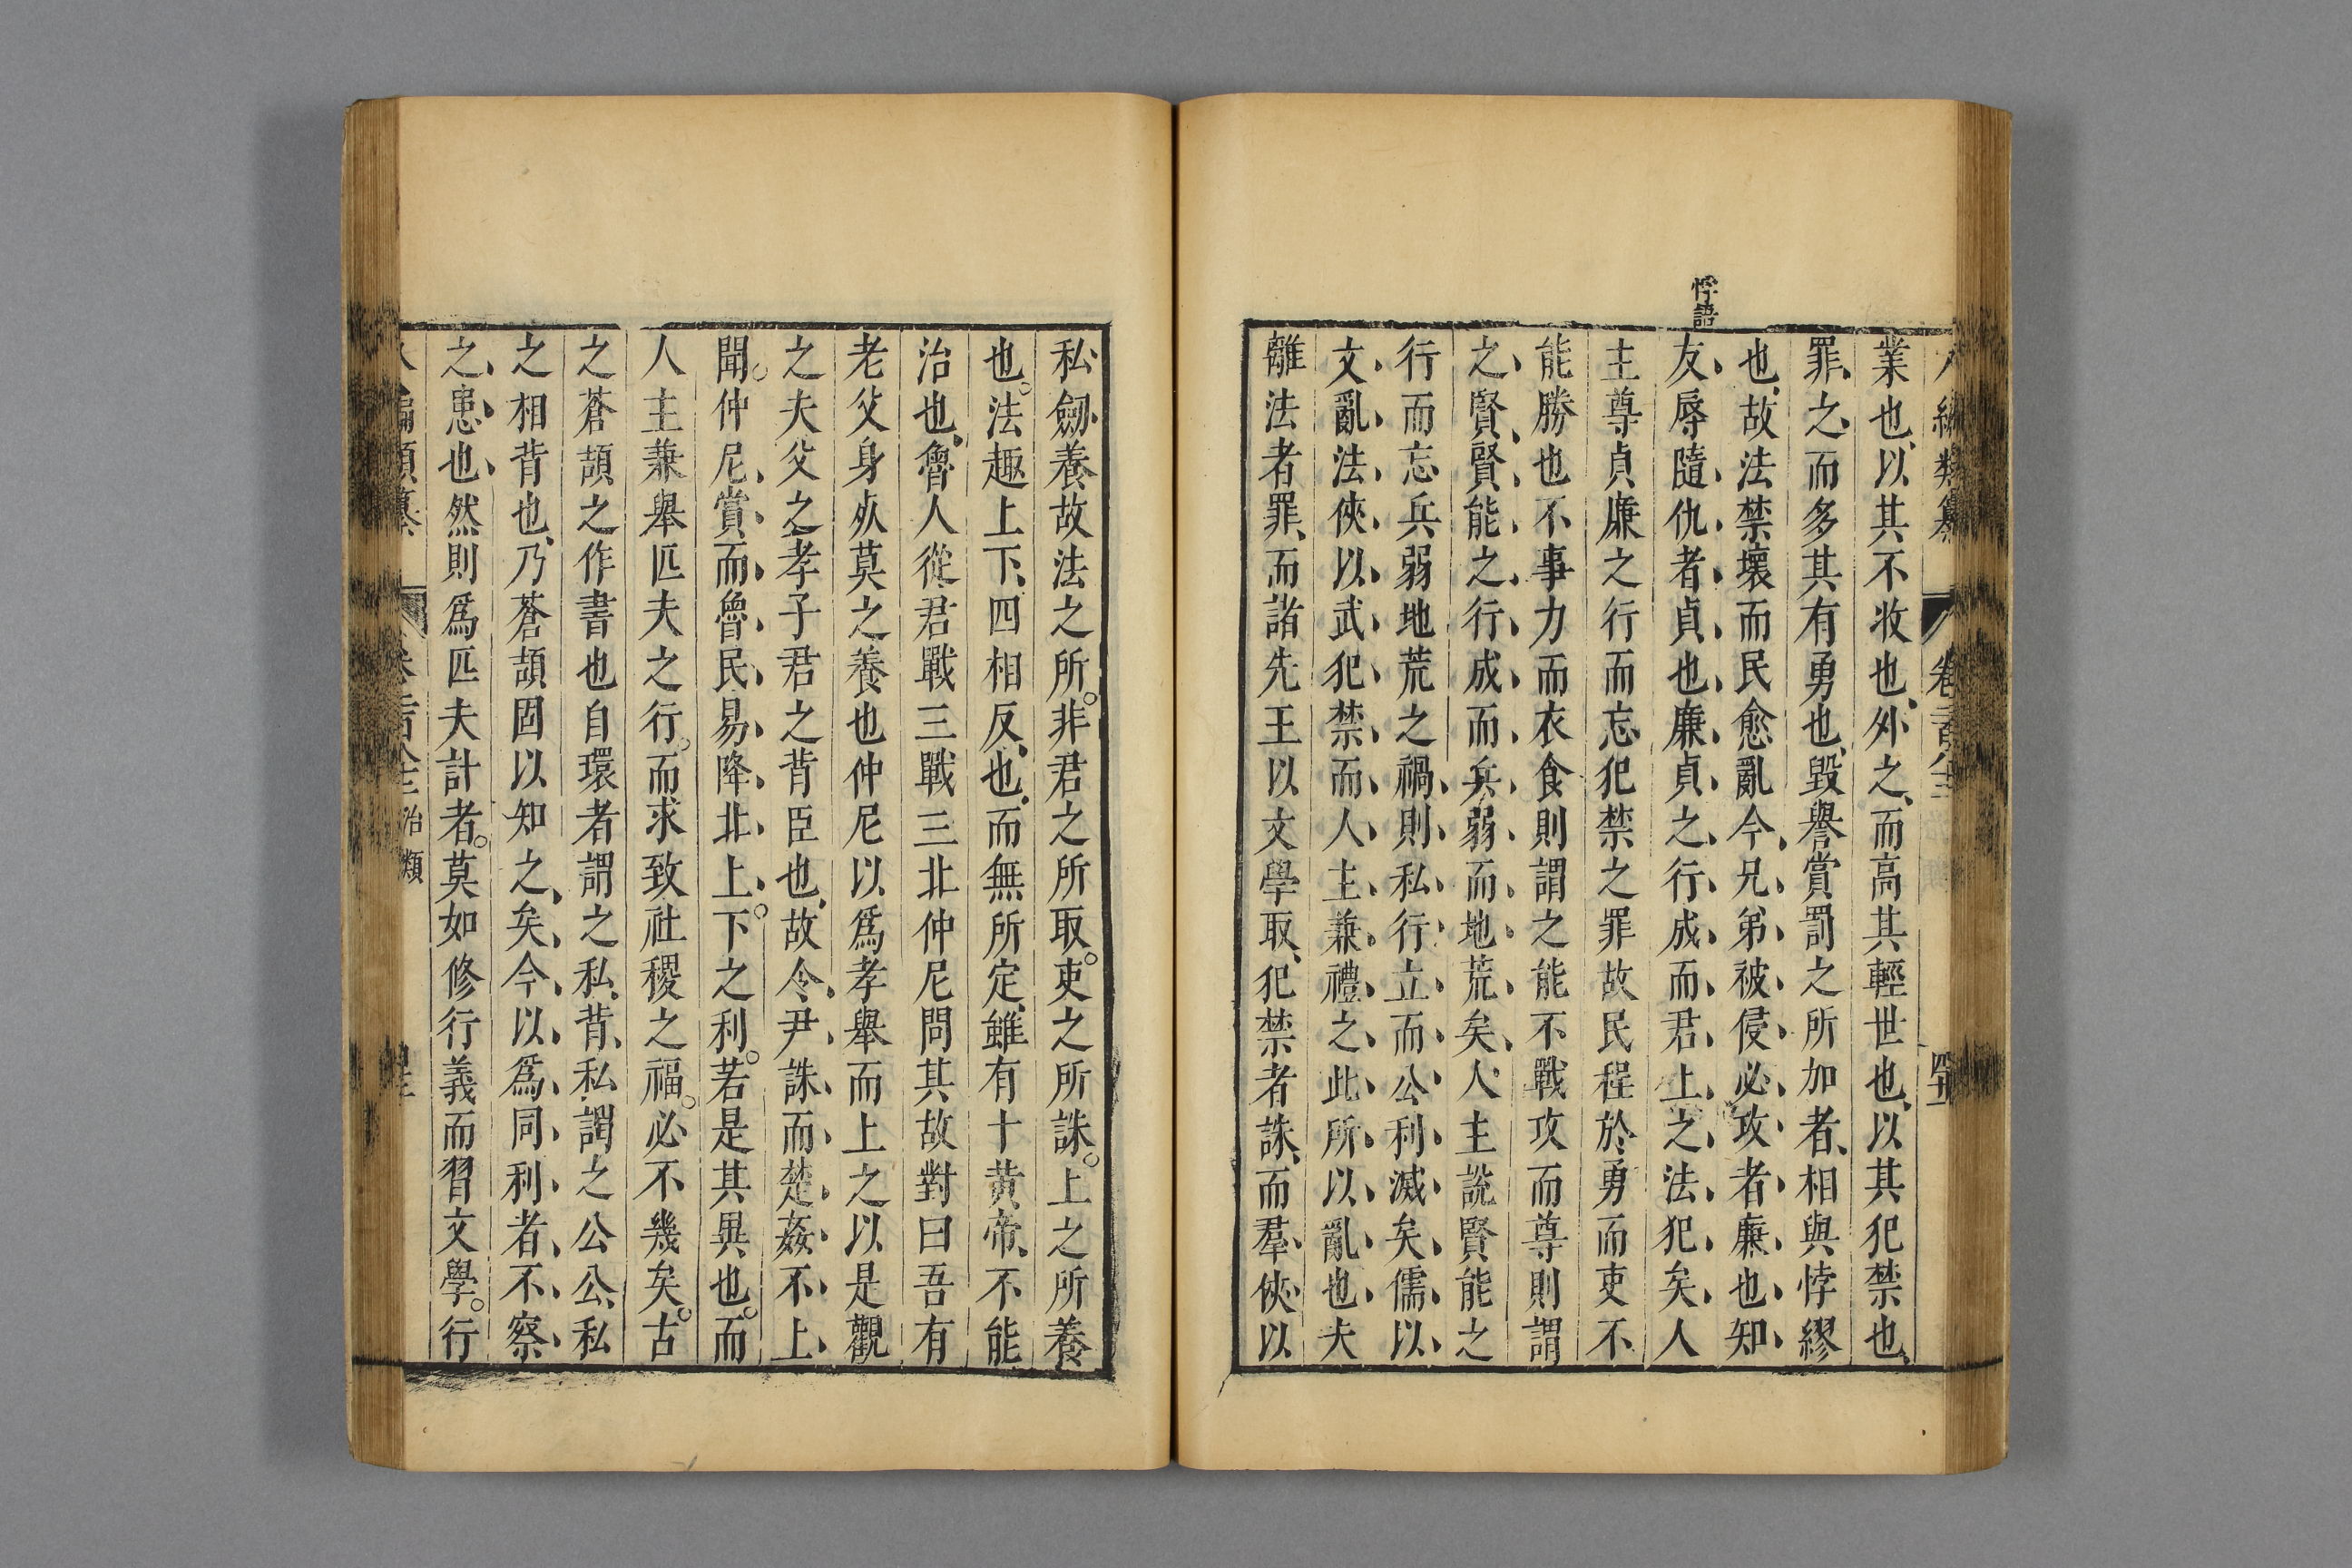 悖語
業也以其不收也外之而高其輕世也以其犯禁也
罪之而多其有勇也毀譽賞罰之所加者相與悖繆
也故法禁壞而民愈亂今兄弟被侵必攻者廉也知
友辱隨仇者貞也廉貞之行成而君上之法犯矣人
主尊貞廉之行而忘犯禁之罪故民程於勇而吏不
能勝也不事力而衣食則謂之能不戰攻而尊則謂
之賢賢能之行成而兵弱而地荒矣人主說賢能之
行而忘兵弱地荒之禍則私行立而公利滅矣儒以
文亂法俠以武犯禁而人主兼禮之此所以亂也夫
離法者罪而諸先王以文學取犯禁者誅而羣俠以
私劒養故法之所非君之所取吏之所誅上之所養
也法趣上下四相反也而無所定雖有十黃帝不能
治也魯人從君戰三戰三北仲尼問其故對曰吾有
老父身㱙莫之養也仲尼以爲孝舉而上之以是觀
之夫父之孝子君之背臣也故令尹誅而楚姦不上
聞仲尼賞而魯民易降北上下之利若是其異也而
人主兼舉匹夫之行而求致社稷之福必不幾矣古
之蒼頡之作書也自環者謂之私背私謂之公公私
之相背也乃蒼頡固以知之矣今以爲同利者不察
之患也然則爲匹夫計者莫如修行義而習文學行
治類